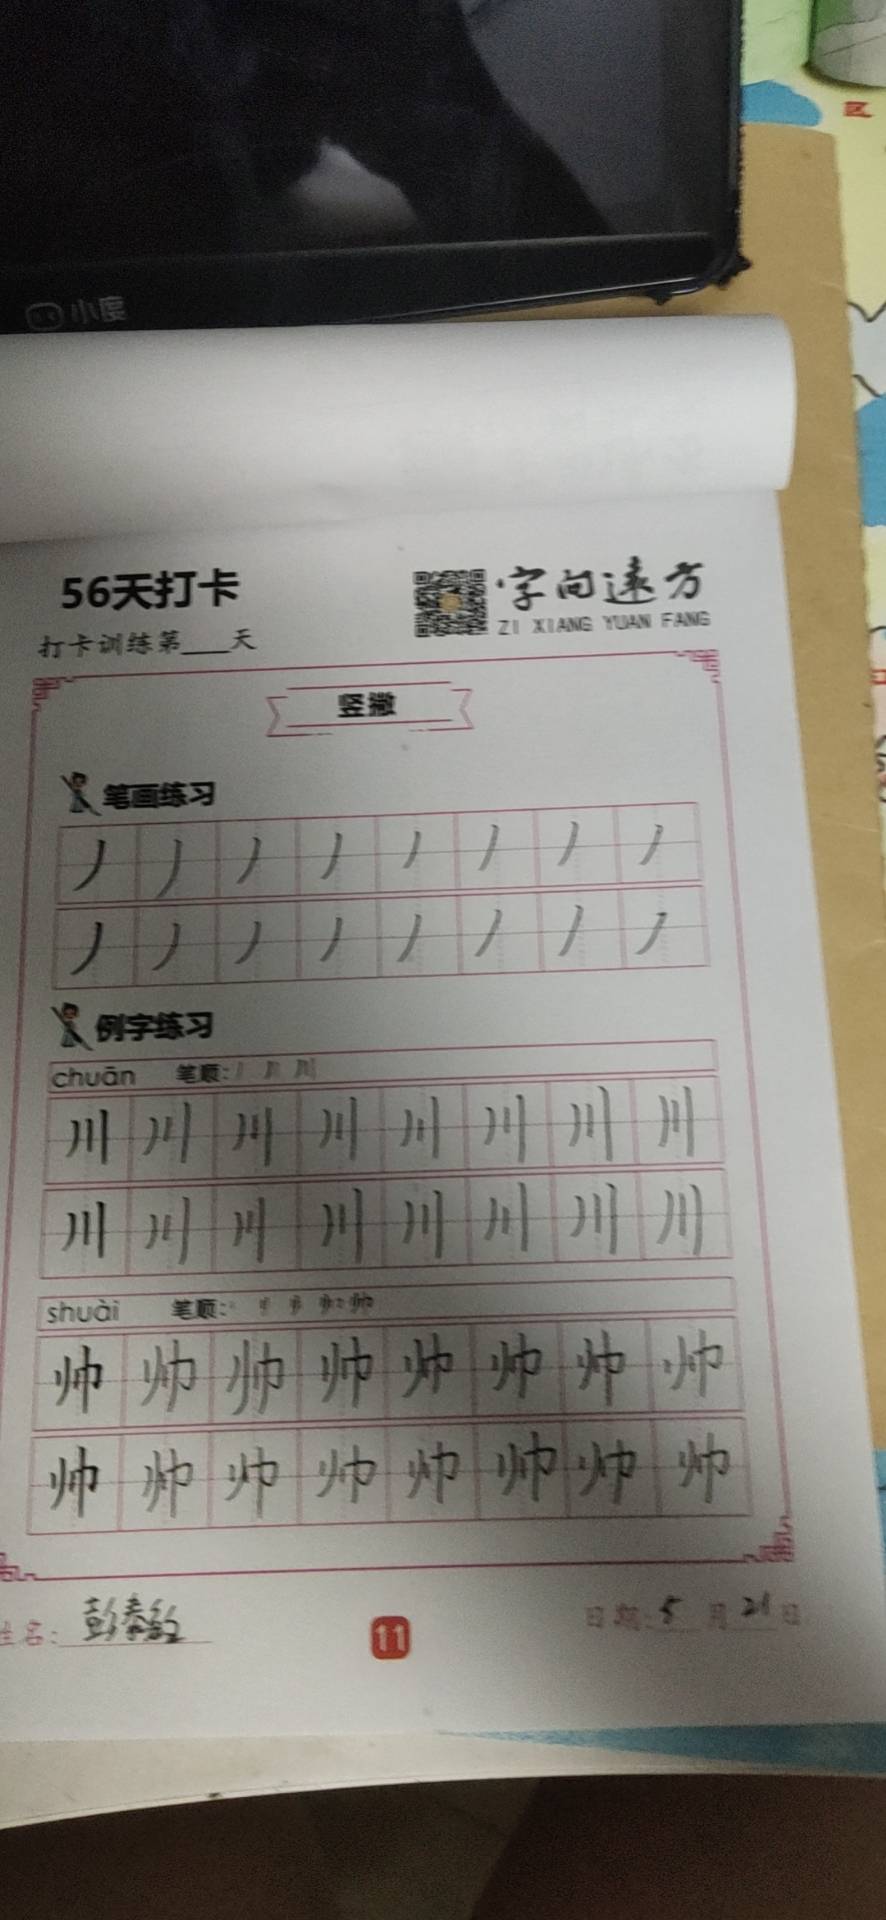 小度
56天打卡
字向遠方
ZI XIANG YUAN FANG
打卡训练第____天
竖撇
笔画练习
丿 丿 丿 丿 丿 丿 丿 丿
丿 丿 丿 丿 丿 丿 丿 丿
例字练习
chuān 笔顺:
川 川 川 川 川 川 川 川
川 川 川 川 川 川 川 川
shuài 笔顺:
帅 帅 帅 帅 帅 帅 帅 帅
帅 帅 帅 帅 帅 帅 帅 帅
姓名: 彭
11
日期: 5 月 21 日